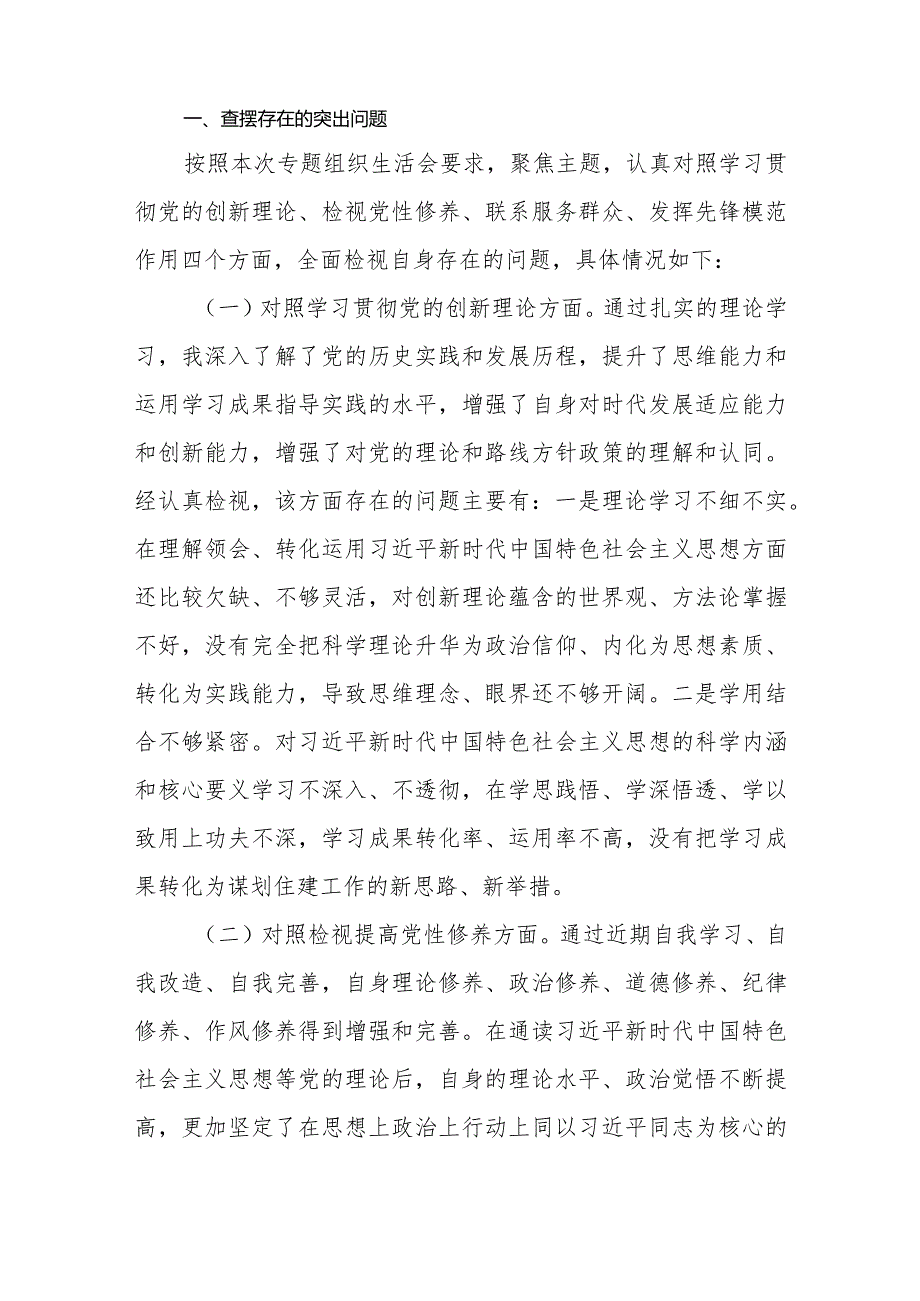 一、查摆存在的突出问题
按照本次专题组织生活会要求，聚焦主题，认真对照学习贯
彻党的创新理论、检视党性修养、联系服务群众、发挥先锋模范
作用四个方面，全面检视自身存在的问题，具体情况如下：
（一）对照学习贯彻党的创新理论方面。通过扎实的理论学
习，我深入了解了党的历史实践和发展历程，提升了思维能力和
运用学习成果指导实践的水平，增强了自身对时代发展适应能力
和创新能力，增强了对党的理论和路线方针政策的理解和认同。
经认真检视，该方面存在的问题主要有：一是理论学习不细不实。
在理解领会、转化运用习近平新时代中国特色社会主义思想方面
还比较欠缺、不够灵活，对创新理论蕴含的世界观、方法论掌握
不好，没有完全把科学理论升华为政治信仰、内化为思想素质、
转化为实践能力，导致思维理念、眼界还不够开阔。二是学用结
合不够紧密。对习近平新时代中国特色社会主义思想的科学内涵
和核心要义学习不深入、不透彻，在学思践悟、学深悟透、学以
致用上功夫不深，学习成果转化率、运用率不高，没有把学习成
果转化为谋划住建工作的新思路、新举措。
（二）对照检视提高党性修养方面。通过近期自我学习、自
我改造、自我完善，自身理论修养、政治修养、道德修养、纪律
修养、作风修养得到增强和完善。在通读习近平新时代中国特色
社会主义思想等党的理论后，自身的理论水平、政治觉悟不断提
高，更加坚定了在思想上政治上行动上同以习近平同志为核心的